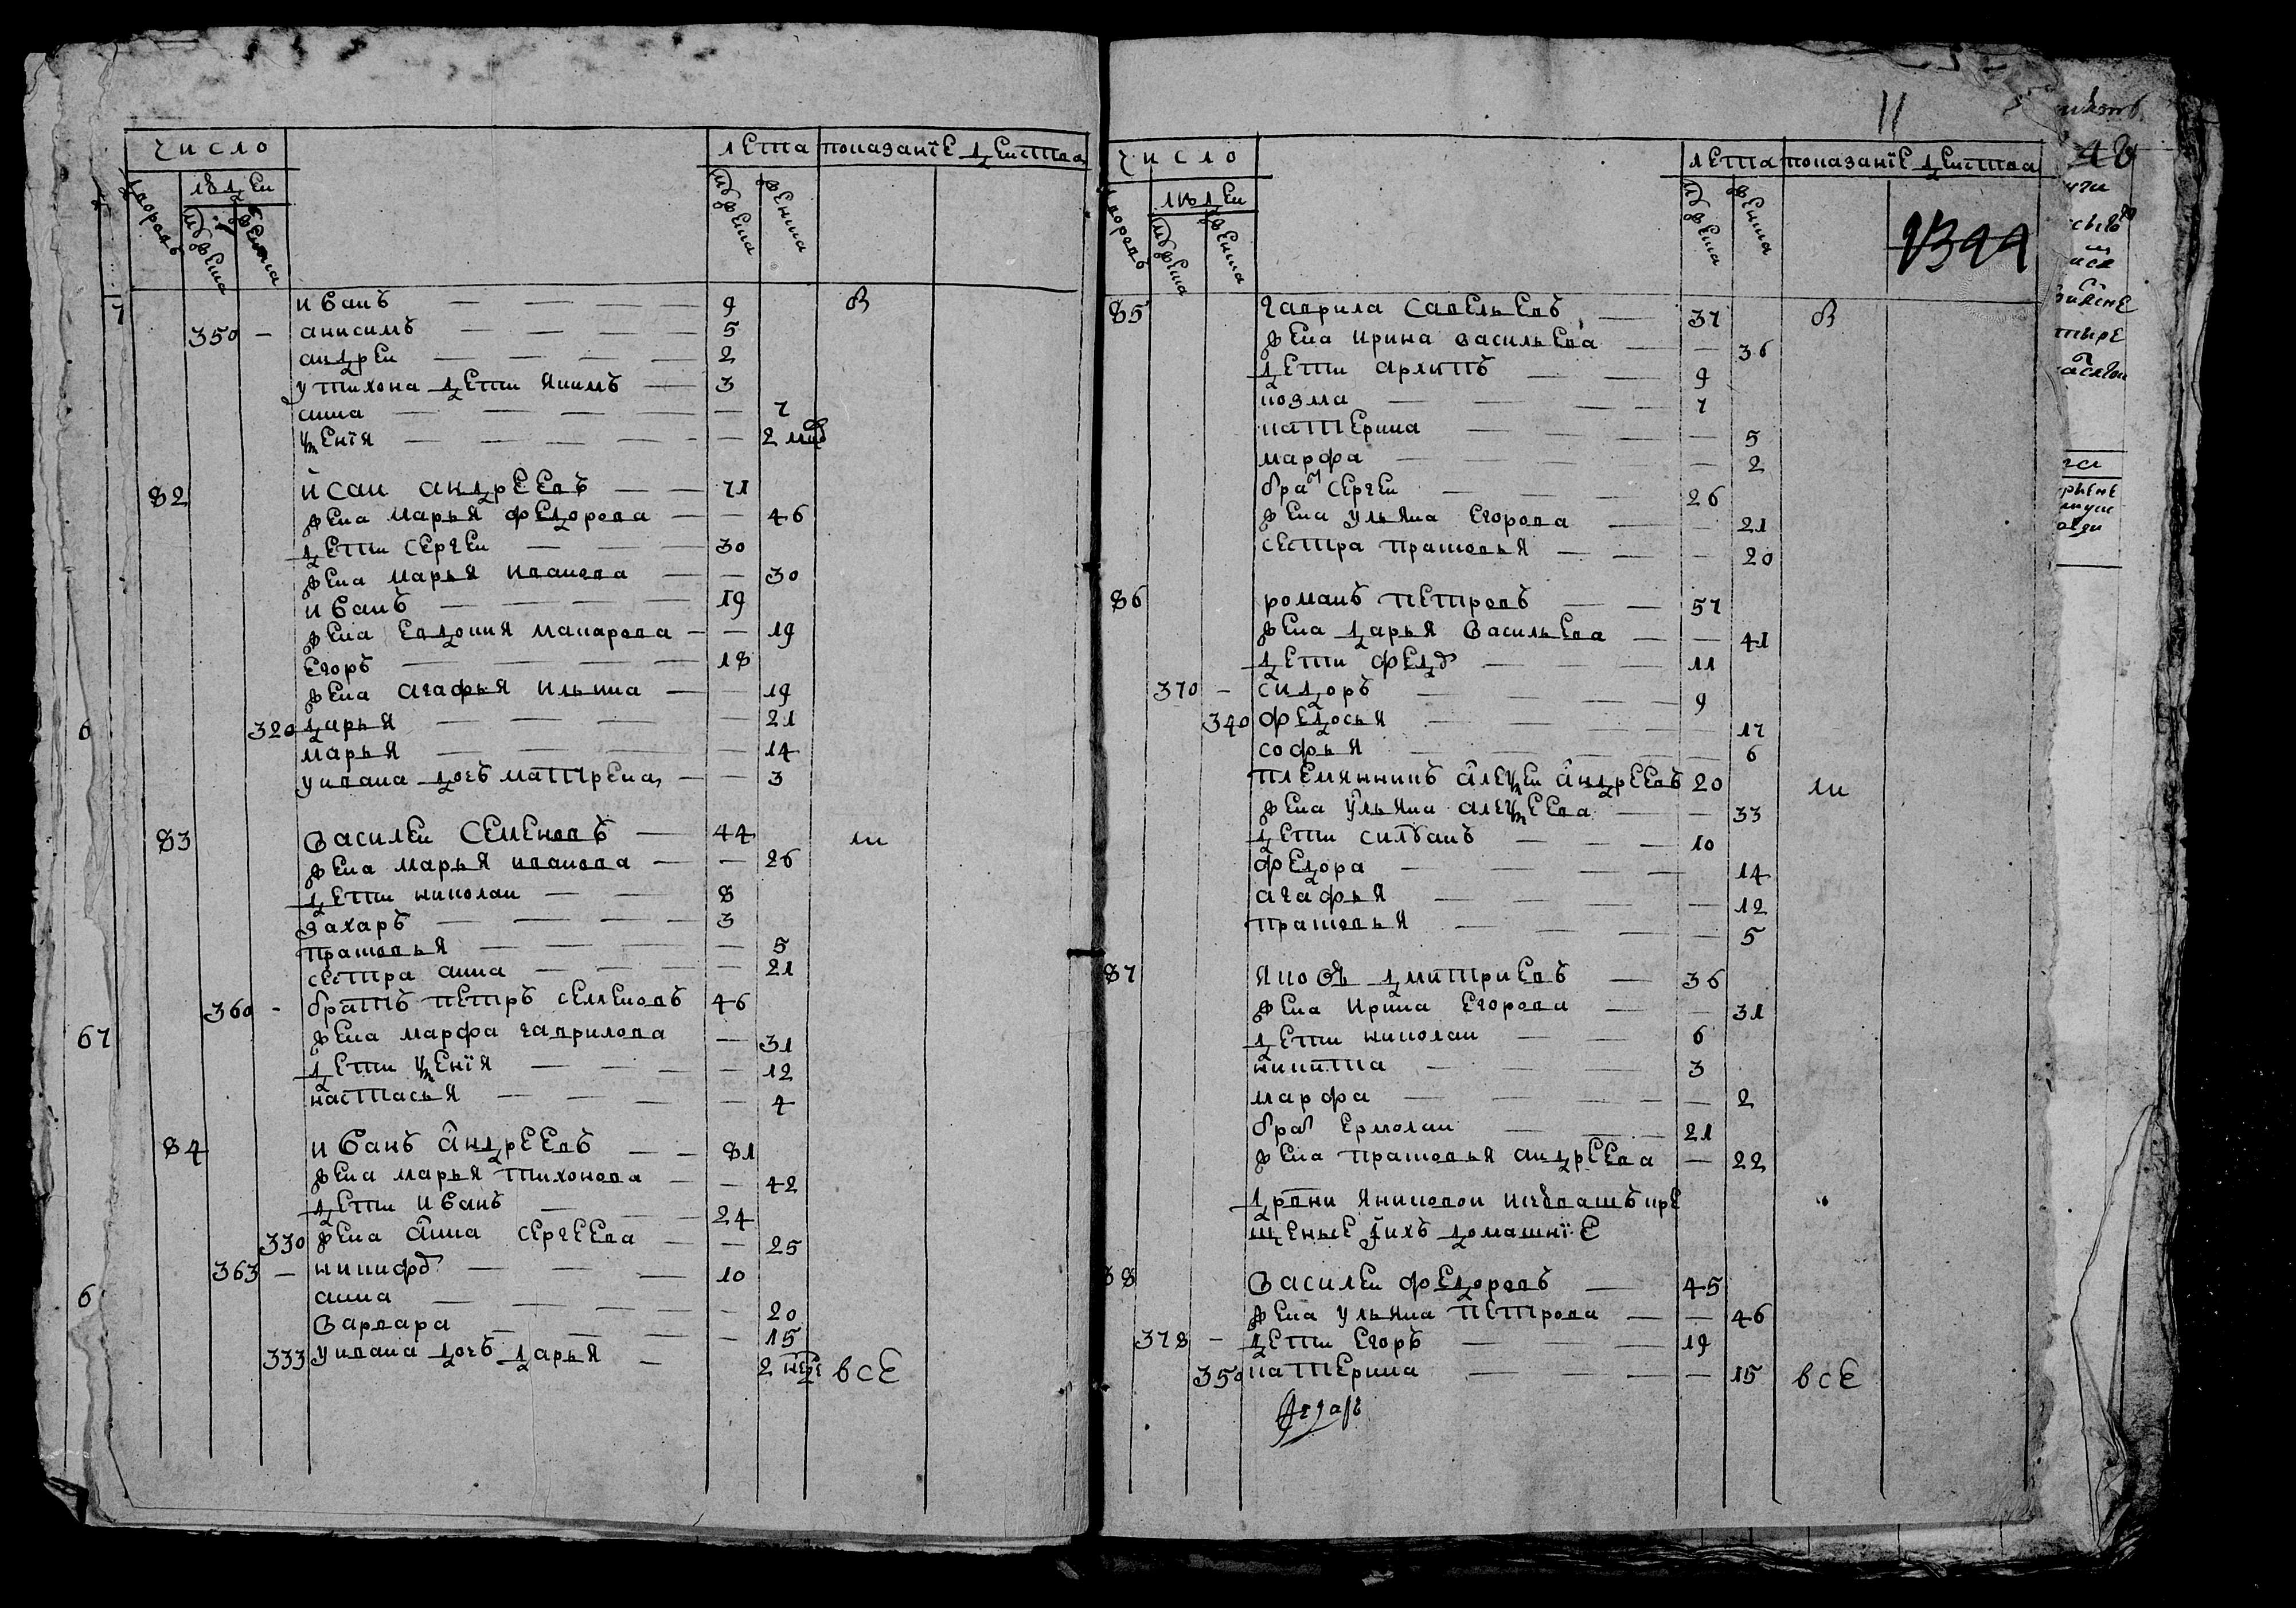 число лета показанїе действа
дворовъ людеи мужеска женска мужеска женска
иванъ — — — — 9 в
350 - анисимъ — — — — 5
андреи — — — — 2
у тихона дети якимъ — 3
анна — — — — — 7
ѯенїя — — — — — 2 мцъ
82 исаи андреевъ — — 71
жена марья федорова — — 46
дети сергеи — — — 30
жена марья иванова — — 30
иванъ — — — — 19
жена евдокия макарова — — 19
егоръ — — — — 18
жена агафья ильина — — 19
320 дарья — — — — — 21
марья — — — — — 14
у ивана дочь матрена — — 3
83 василеи семеновъ — 44 м
жена марья иванова — — 26
дети николаи — — 8
захаръ — — — — 3
прасковья — — — — — 5
сестра анна — — — — 21
360 - братъ петръ семеновъ 46
жена марфа гаврилова — 31
дети ѯенїя — — — — 12
настасья — — — — 4
84 иванъ андреевъ — — 81
жена марья тихонова — — 42
дети иванъ — — — 24
330 жена анна сергеева — — 25
363 — никифоръ — — — 10
анна — — — — — 20
варвара — — — — 15
333 у ивана дочь дарья — 2 неде все
11
число лета показанїе действа
дворовъ людеи мужеска женска мужеска женска
85 гаврила савельевъ — 37 в
жена ирина васильева — — 36
дети архипъ — — 9
козма — — — — 7
катерина — — — — 5
марфа — — — — 2
братъ сергеи — — — 26
жена ульяна егорова — — 21
сестра прасковья — — — 20
86 романъ петровъ — — 57
жена дарья васильева — — 41
дети федоръ — — — 11
370 - сидоръ — — — 9
340 федосья — — — — 17
софья — — — — 6
племянникъ алеѯеи андреевъ 20 м
жена ульяна алеѯеева — — 33
дети силванъ — — — 10
федора — — — — 14
агафья — — — — 12
прасковья — — — — 5
87 яковъ дмитриевъ — 36
жена ирина егорова — — 31
дети николаи — — 6
никита — — — 3
марфа — — — — 2
братъ ермолаи — — — 21
жена прасковья андреева — 22
дрвни яниковои ичювашъ кре
щеные ихъ домашнїе
88 василеи федоровъ — 45
жена ульяна петрова — — 46
378 - дети егоръ — — 19
350 катерина — — — — 15 все